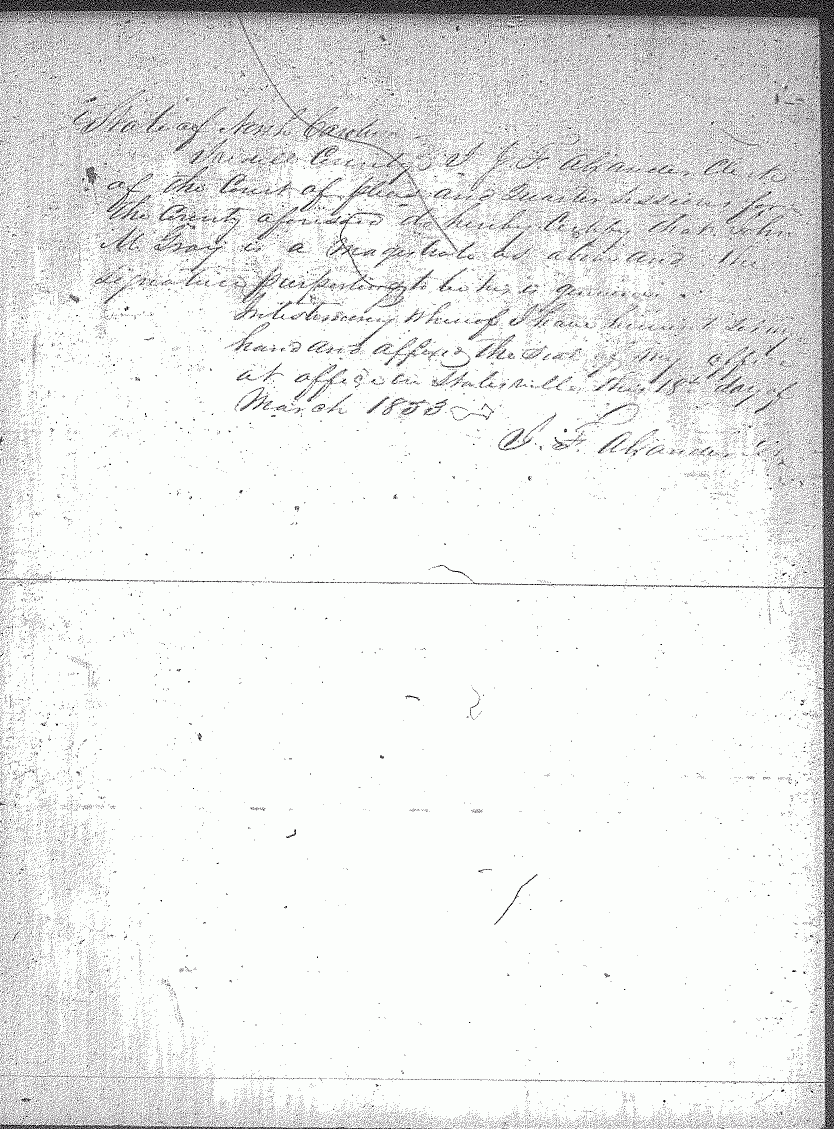 State of North Carolina
Iredell County } I J. F. Alexander Clerk
of the Court of pleas and Quarter Sessions for
the County aforesaid do hereby Certify that John
M. Gray is a magistrate as above and the
signature purporting to be his is genuine.
In testimony Whereof I have hereunt set my
hand and affixed the seal of my office
at office in Statesville this 18th day of
March 1853
J. F. Alexander